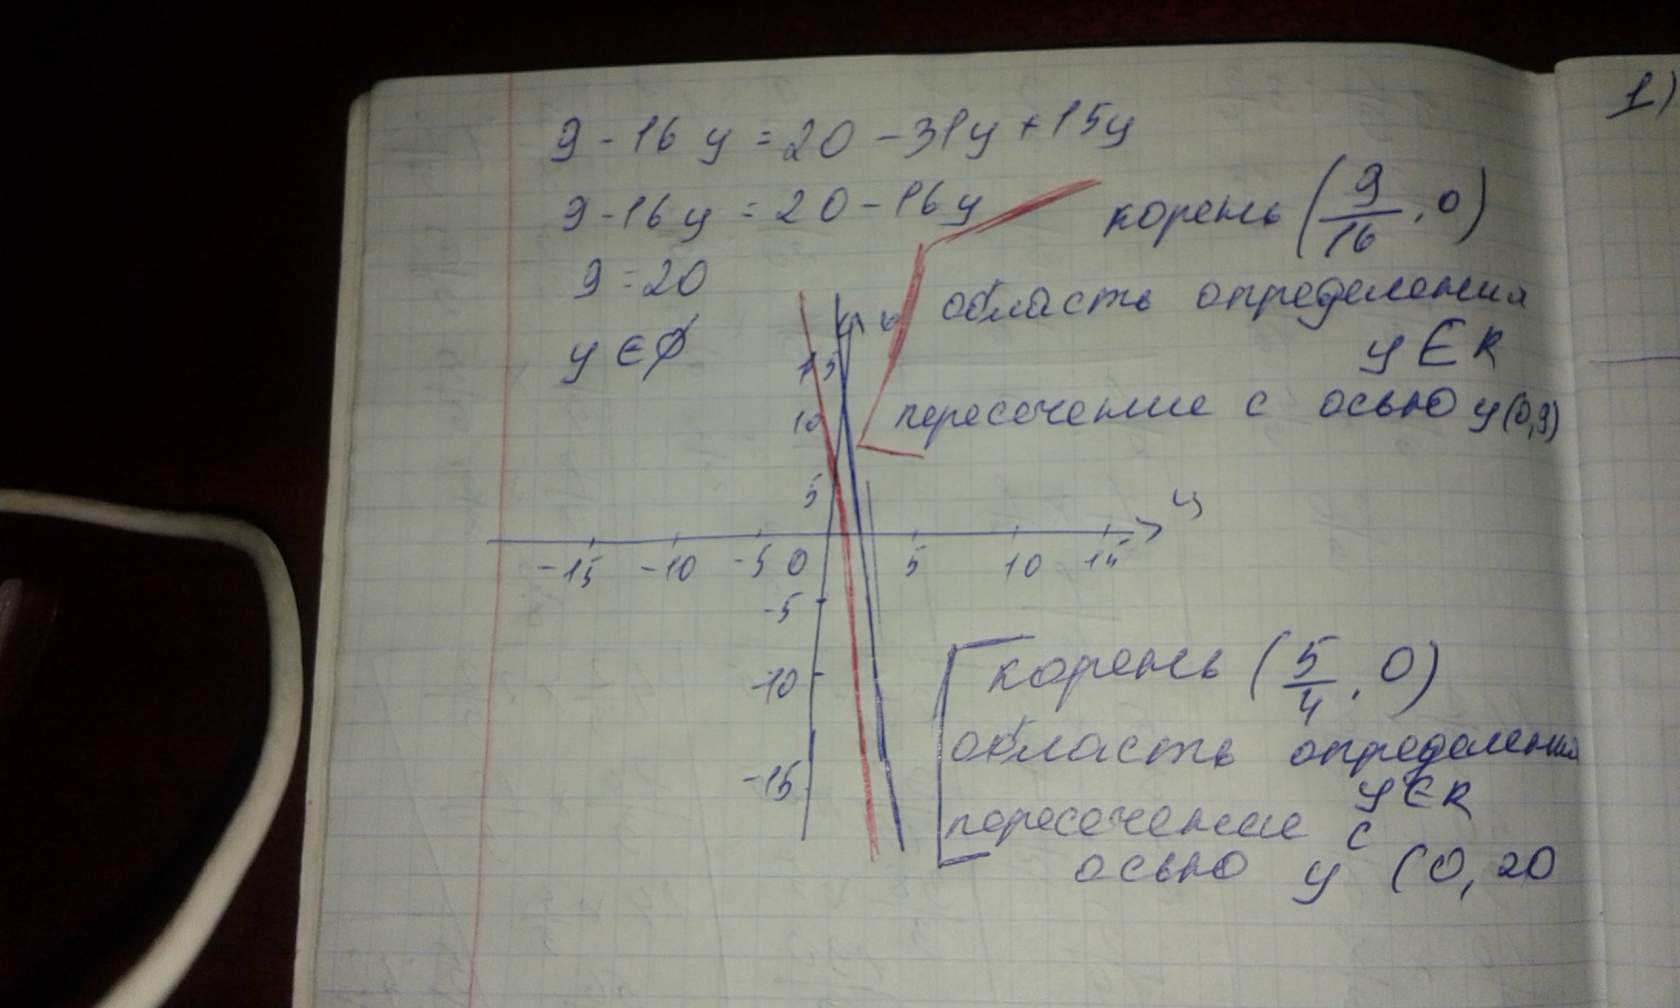 9 - 16y = 20 - 31y + 15y
9 - 16y = 20 - 16y
9 = 20
y ∈ ∅
1)
корень (9/16, 0)
область определения
y ∈ R
пересечение с осью y(0,9)
15
10
5
y
-15 -10 -5 0 5 10 15
-5
-10
-15
корень (5/4, 0)
область определения
y ∈ R
пересечение с
осью y (0, 20